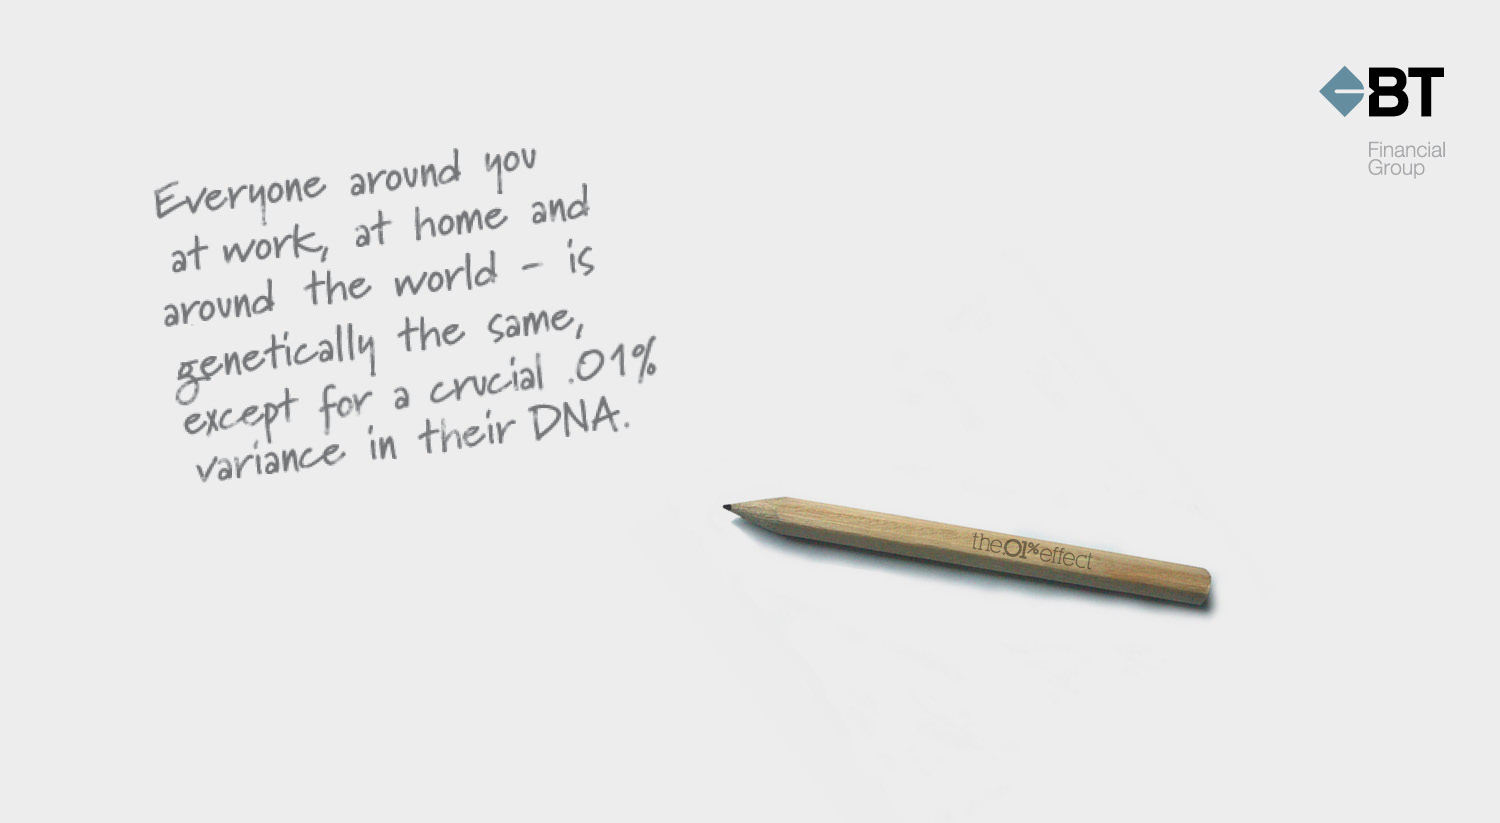 Everyone around you
at work, at home and
around the world - is
genetically the same,
except for a crucial .01%
variance in their DNA.
BT
Financial
Group
the.01%effect